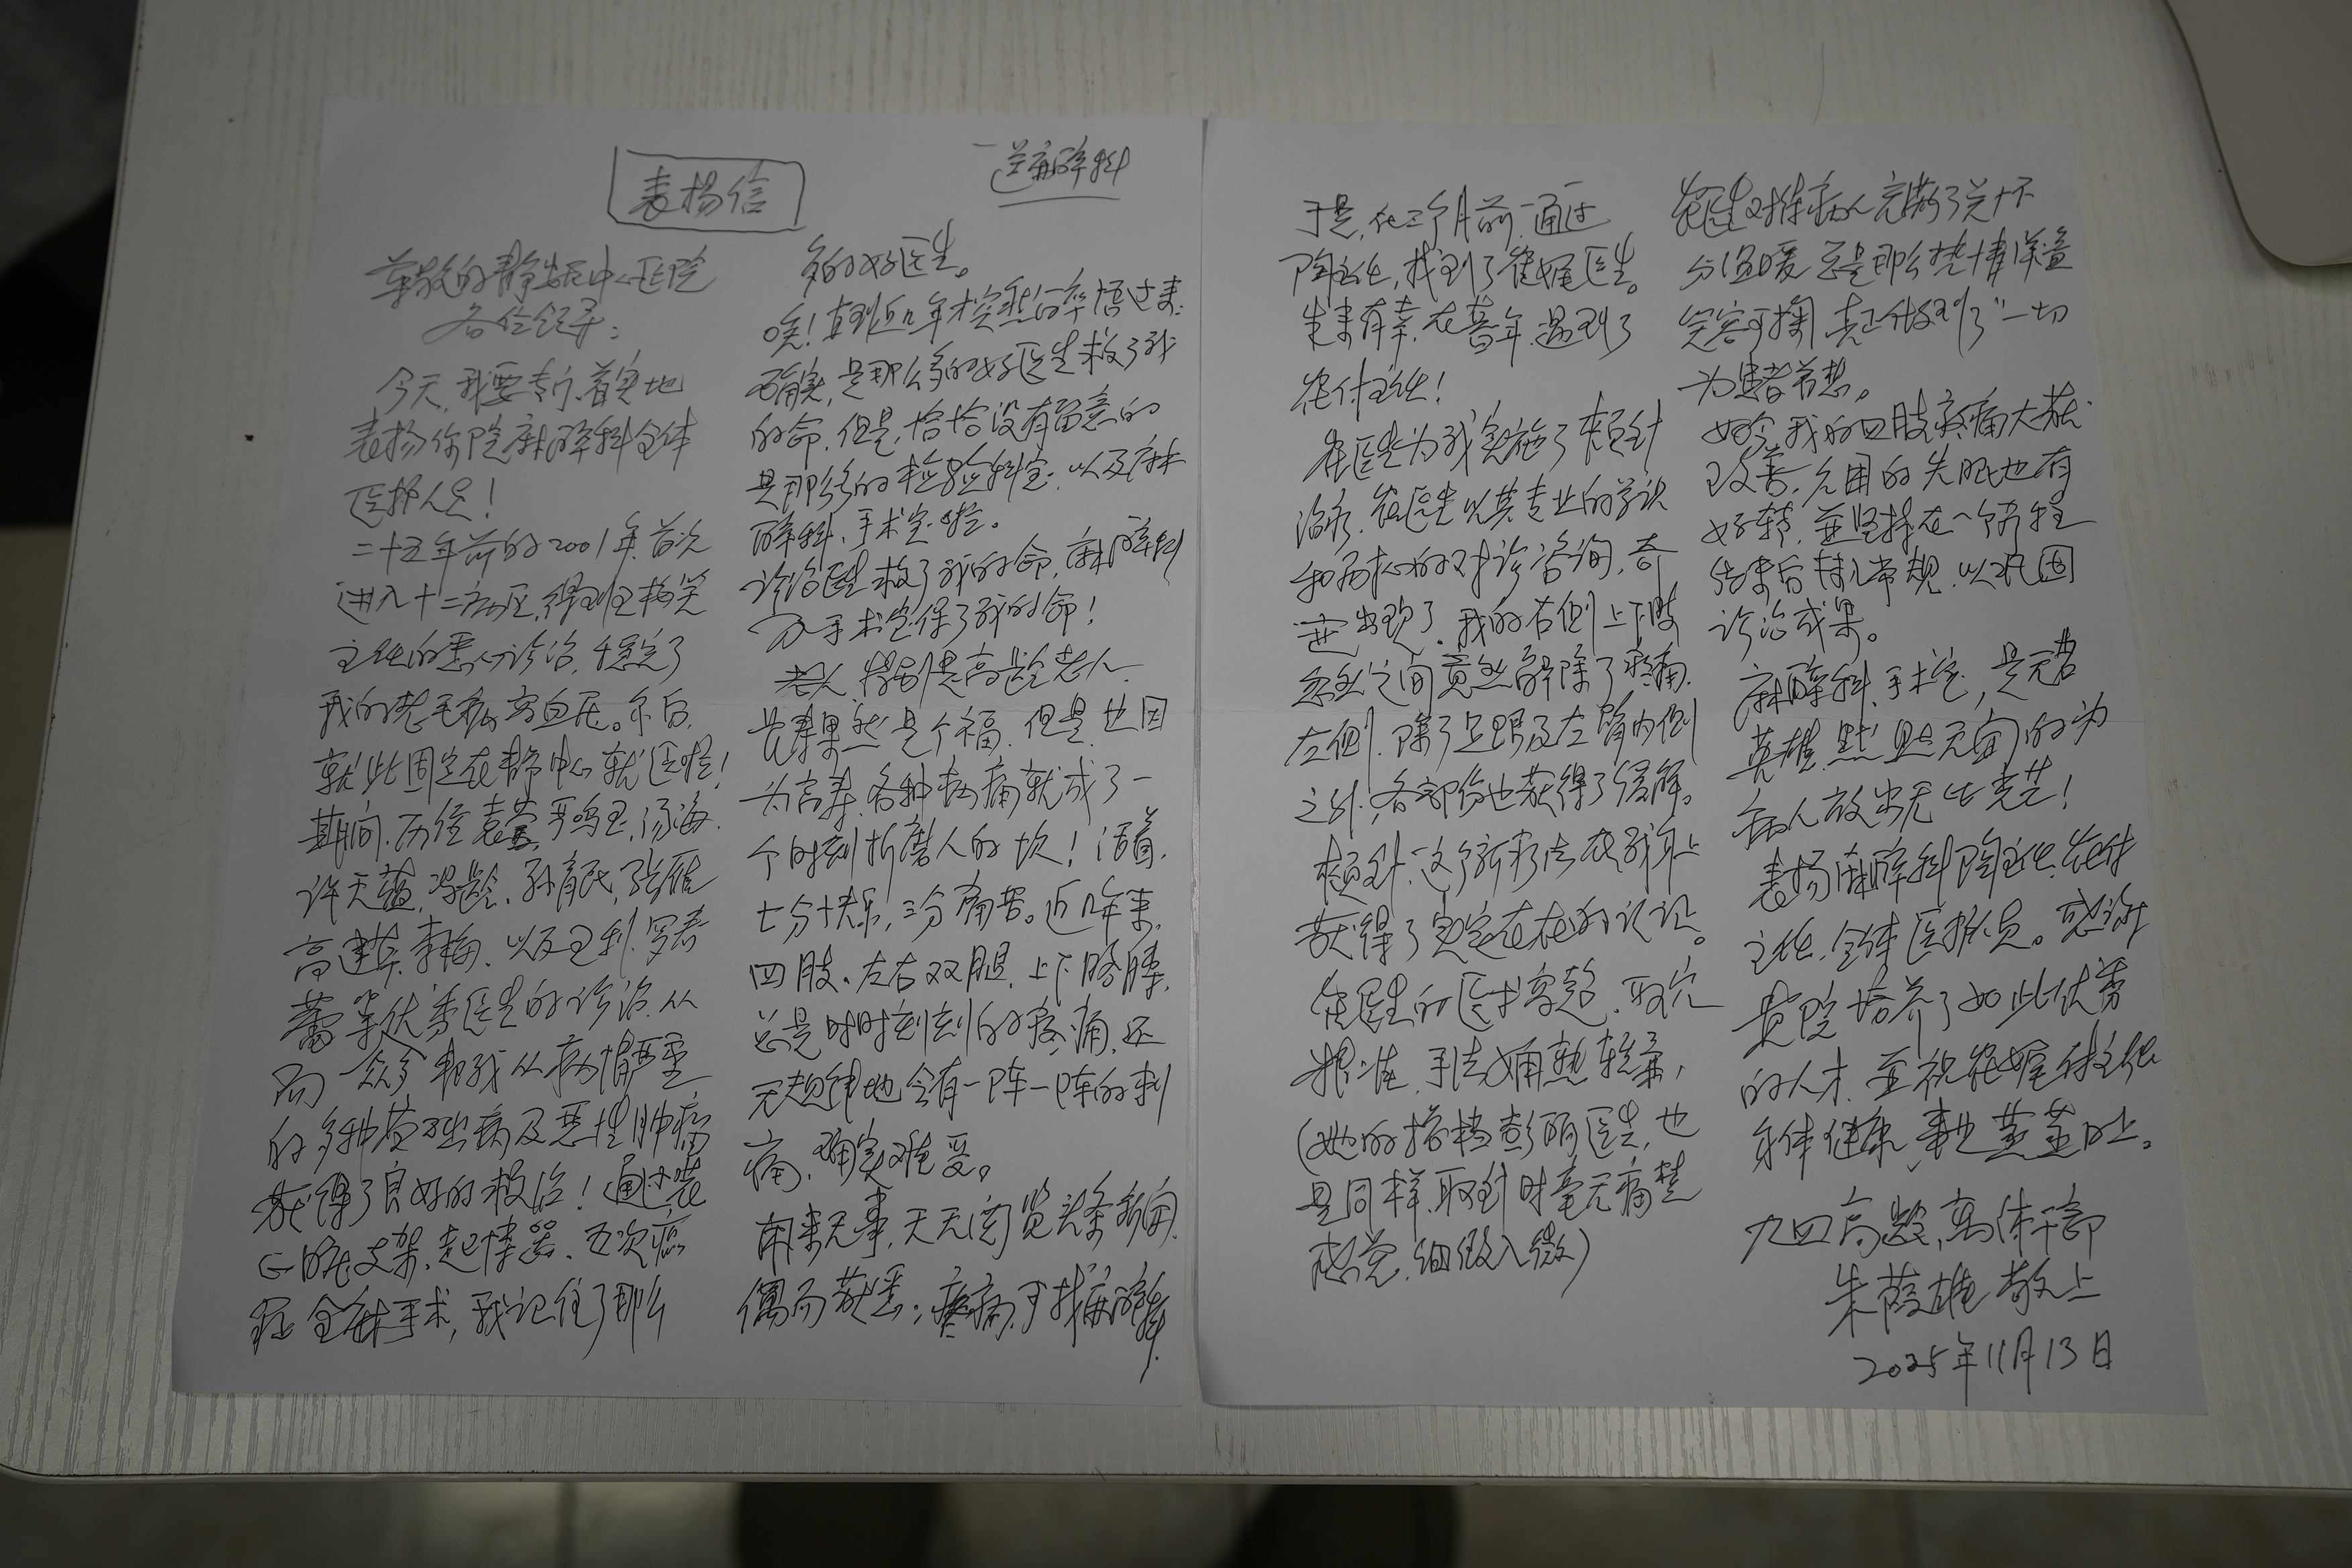 表扬信
—送麻醉科
尊敬的静安区中心医院
各位领导：
今天，我要专门、着实地
表扬你院麻醉科全体
医护人员！
二十五年前的2001年，首次
进入十二病区，得到王
主任的悉心诊治，稳定了
我的老毛病高血压。尔后，
就此固定在静中心就医啦！
期间，历经袁 、严鸣玉、汤海、
许天蕴、 、孙育民、张雁、
高建英、李梅、以及王利、罗春
蕾等优秀医生的诊治，从
而 帮我从病情严重
的多种突发病及恶性肿瘤
获得了良好的救治！通过装
心脏支架、起搏器、五次癌
症全麻手术，我记住了那么
多的好医生。
唉！直到近几年才突然的醒悟过来：
确实，是那么多的好医生救了我
的命，但是，恰恰没有留意的
是那么多的检验科室、以及麻
醉科、手术室啦。
诊治医生救了我的命，麻醉科
及手术室保了我的命！
老人，特别是高龄老人，
长寿果然是个福，但是，也因
为高寿，各种病痛就成了一
个时刻折磨人的坎！活着，
七分快乐，三分痛苦。近几年来，
四肢、左右双腿、上下胳膊，
总是时时刻刻的疼痛，还
无规律地会有一阵一阵的刺
痛，确实难受。
闲来无事，天天阅览头条新闻，
偶而获悉：疼痛，可找麻醉科。
于是，在三个月前，通过
陶主任，找到了崔娓医生。
生来有幸，在暮年，遇到了
崔付主任！
崔医生为我实施了 针
治疗，崔医生以其专业的学识
和耐心的对诊咨询，奇
迹出现了，我的右侧上下肢
忽然之间竟然解除了疼痛，
左侧，除了足跟及左臂内侧
之外，各部份也获得了缓解。
针，这个新疗法在我身上
获得了实实在在的认识。
崔医生的医术高超，取穴
精准，手法娴熟轻柔，
（她的搭档彭丽医生，也
是同样，取针时毫无痛楚
感觉，细致入微）
崔医生对待病人充满了关怀
分温暖，总是那么热情洋溢
笑容可掬，真正做到了“一切
为患者着想。
如今，我的四肢疼痛大获
改善，久困的失眠也有
好转，并坚持在一个疗程
结束后转入常规，以巩固
诊治成果。
麻醉科、手术室，是无名
英雄，默默无闻的为
病人放出无比光芒！
表扬麻醉科陶主任、崔付
主任、全体医护人员。感谢
贵院培养了如此优秀
的人才，并祝崔娓付主任
身体健康，事业蒸蒸日上。
九四高龄，离休干部
朱葭雄 敬上
2025年11月13日